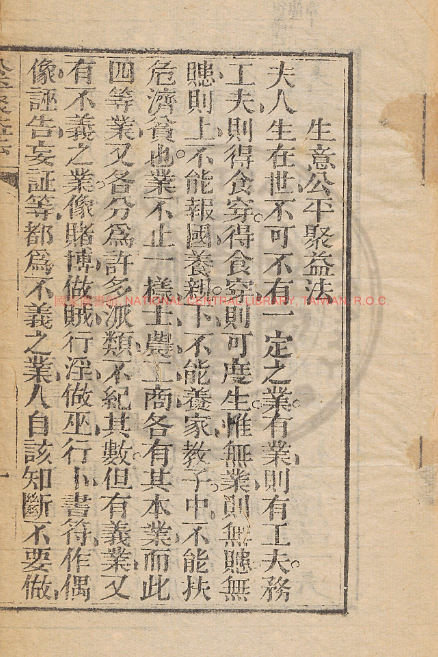 生意公平聚益法
夫人生在世不可不有一定之業有業則有工夫務
工夫則得食穿得食穿則可度生惟無業則無賺無
賺則上不能報國養親下不能養家教子中不能扶
危濟貧也業不止一樣士農工商各有其本業而此
四等業又各分爲許多派類不紀其數但有義業又
有不義之業像賭博做賊行淫做巫行卜書符作偶
像誣告妄証等都爲不義之業人自該知斷不要做
國家圖書館 NATIONAL CENTRAL LIBRARY, TAIWAN, R.O.C.